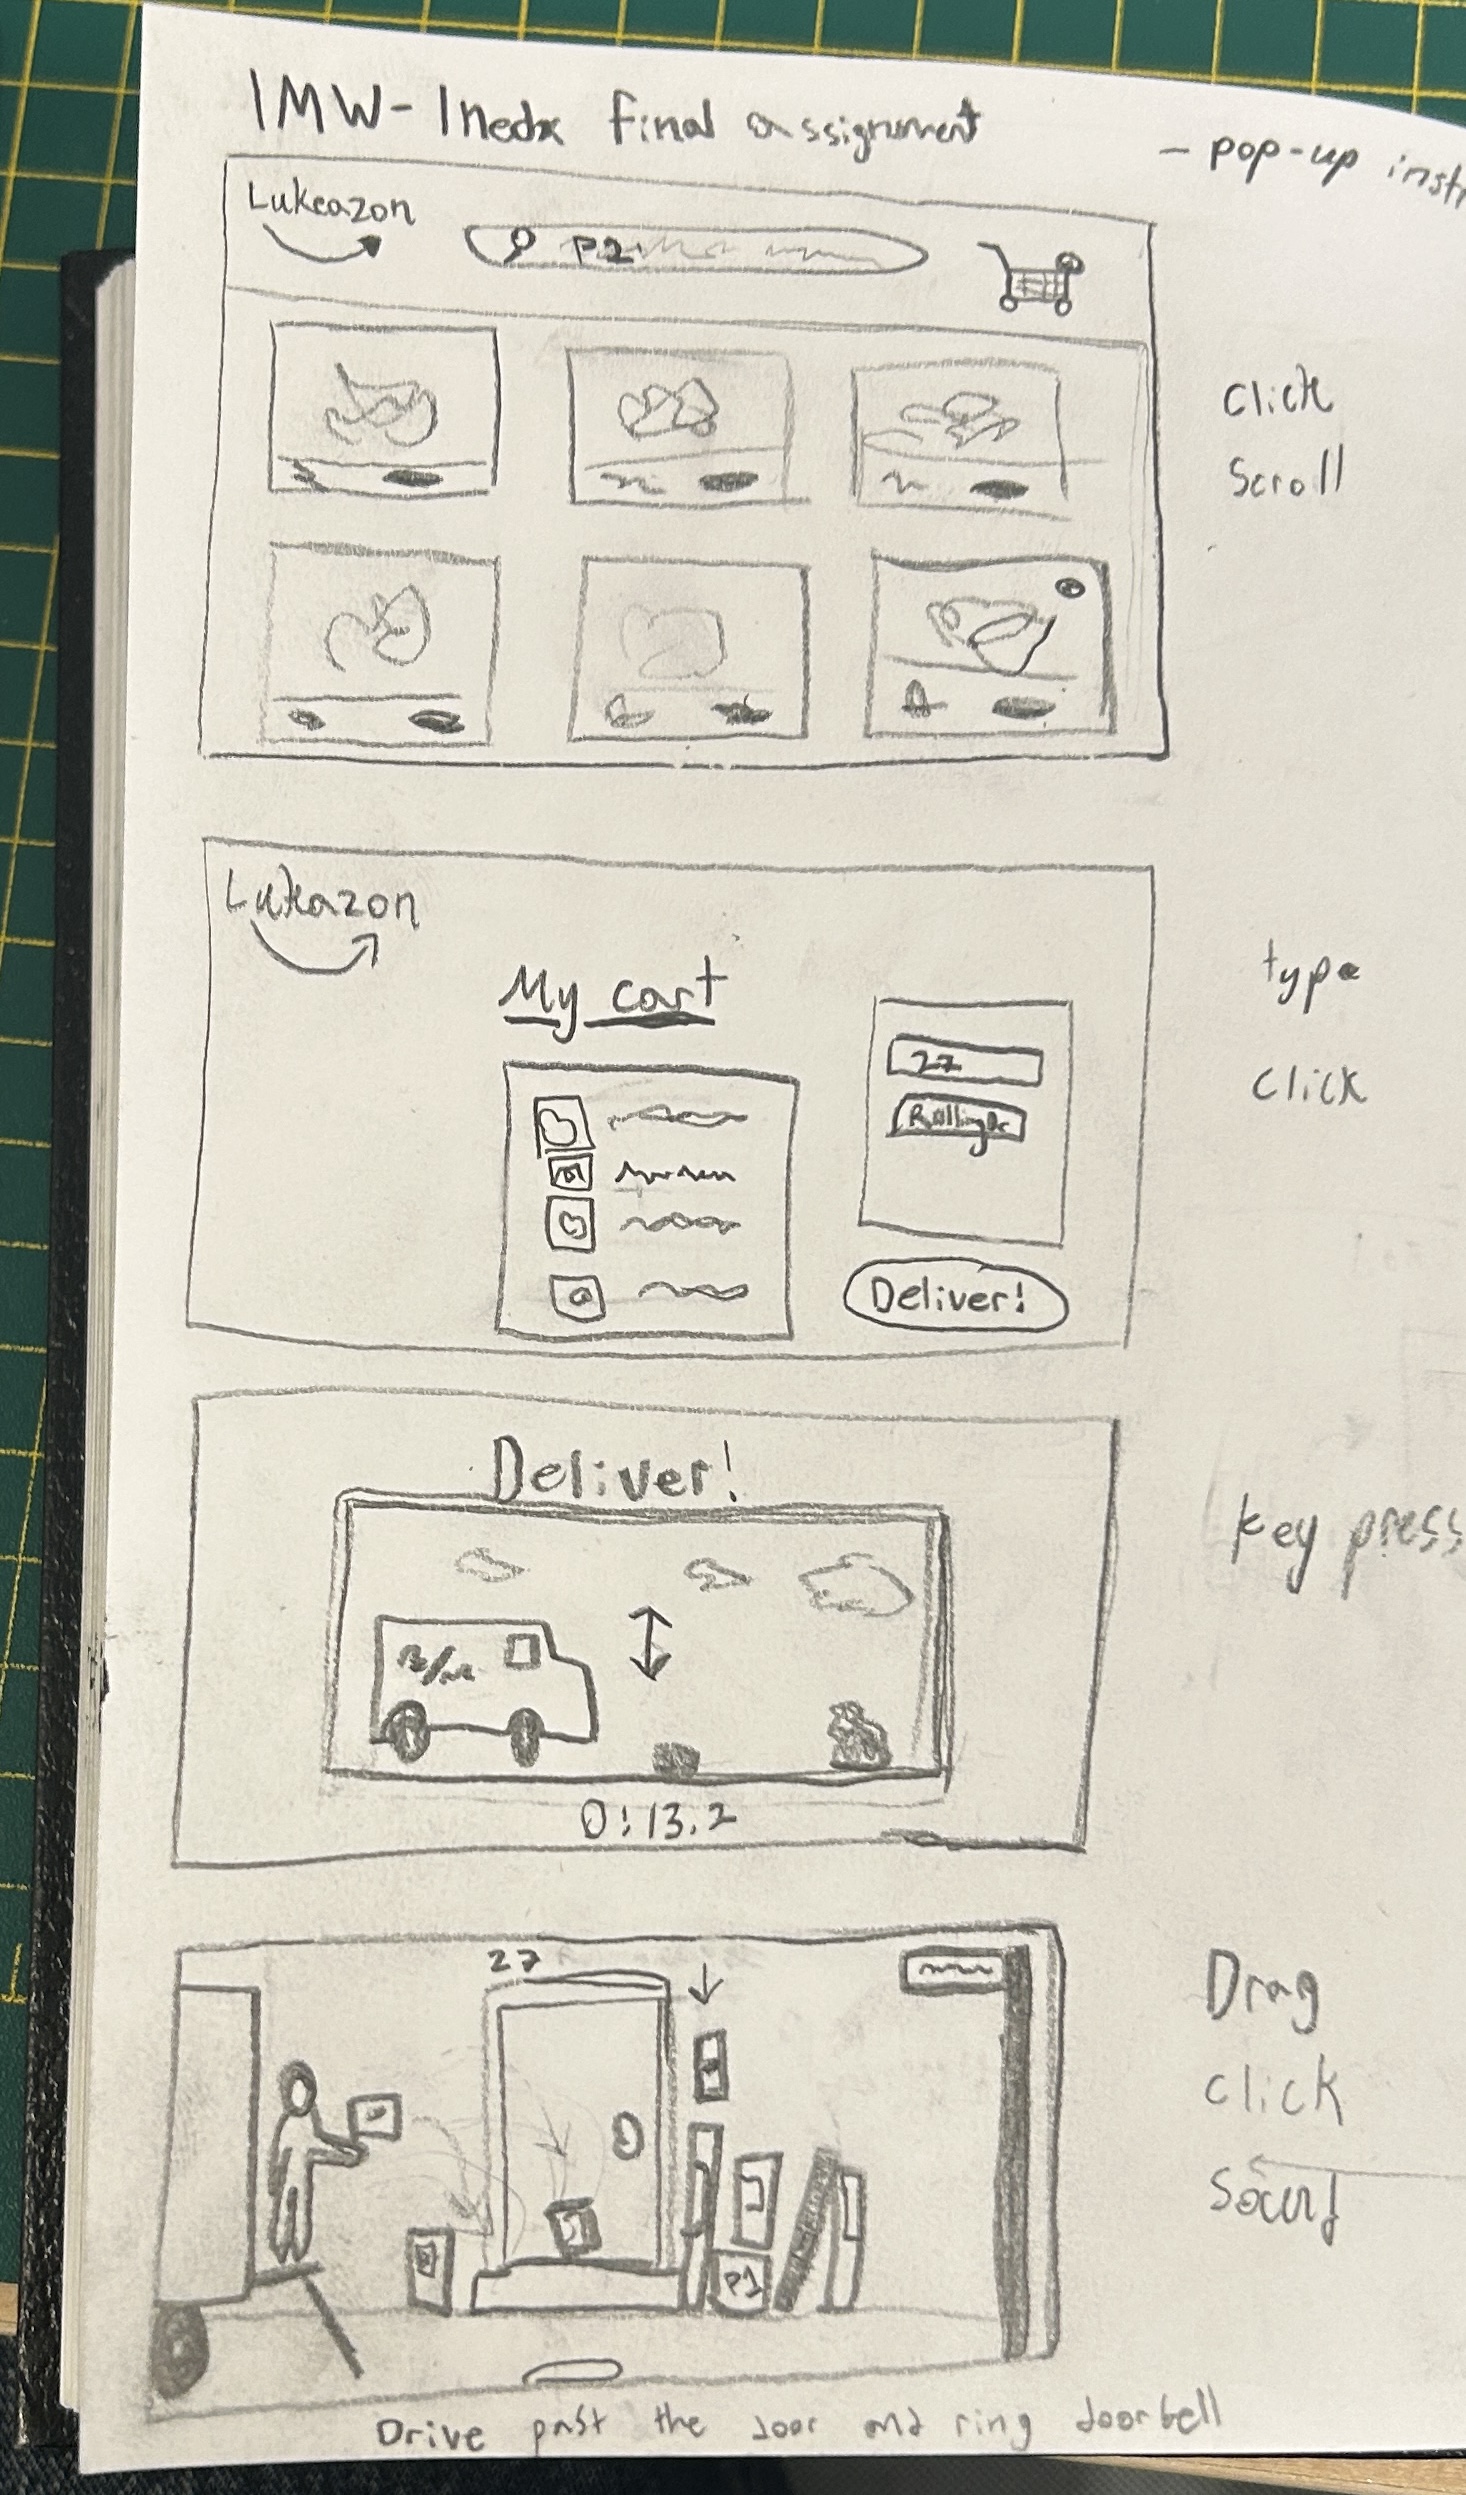 IMW- Inedx final assignment
- pop-up instr
Lukeazon
P2
Click
Scroll
Lukazon
My cart
27
Rolling
Deliver!
type
click
Deliver!
0:13.2
key press
27
P1
Drag
click
Drive past the door and ring doorbell